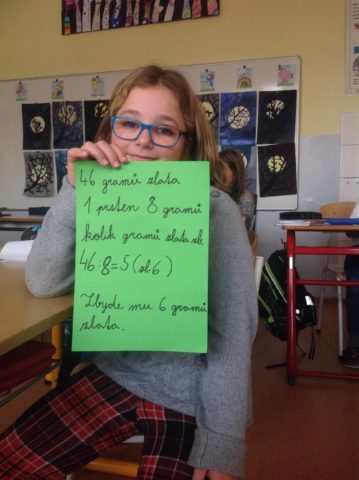 46 gramů zlata
1 prsten 8 gramů
kolik gramů zlata zb.
46:8=5 (zb.6)
Zbyde mu 6 gramů
zlata.